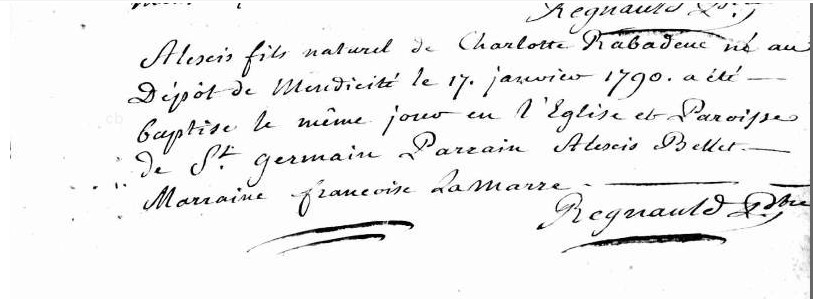 Regnauld
Alexis fils naturel de Charlotte Rabadeuc né au
Dépôt de Mendicité le 17. janvier 1790. a été —
baptise le même jour en l'Eglise et Paroisse
de St. germain Parrain Alexis Bellet. —
Marraine francoise LaMarre —
Regnauld Pbtre